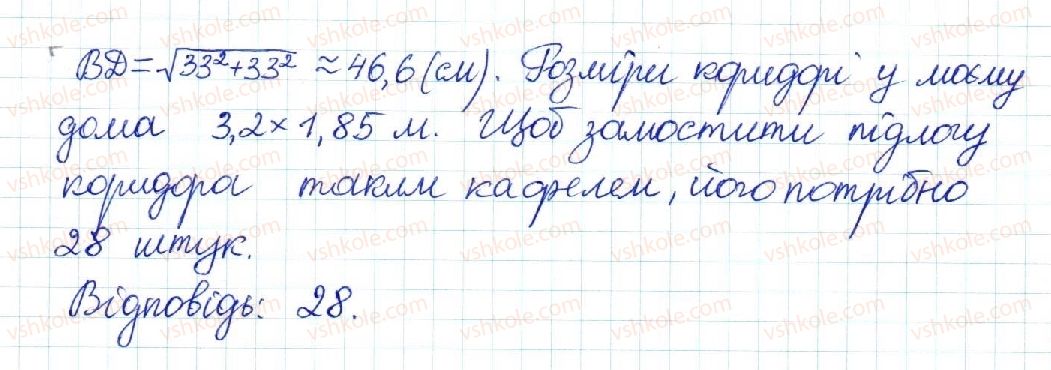 ВД = √33²+33² ≈ 46,6 (см). Розміри коридорі у моєму
дома 3,2 × 1,85 м. Щоб замостити підлогу
коридора таким кафелем, його потрібно
28 штук.
Відповідь: 28.